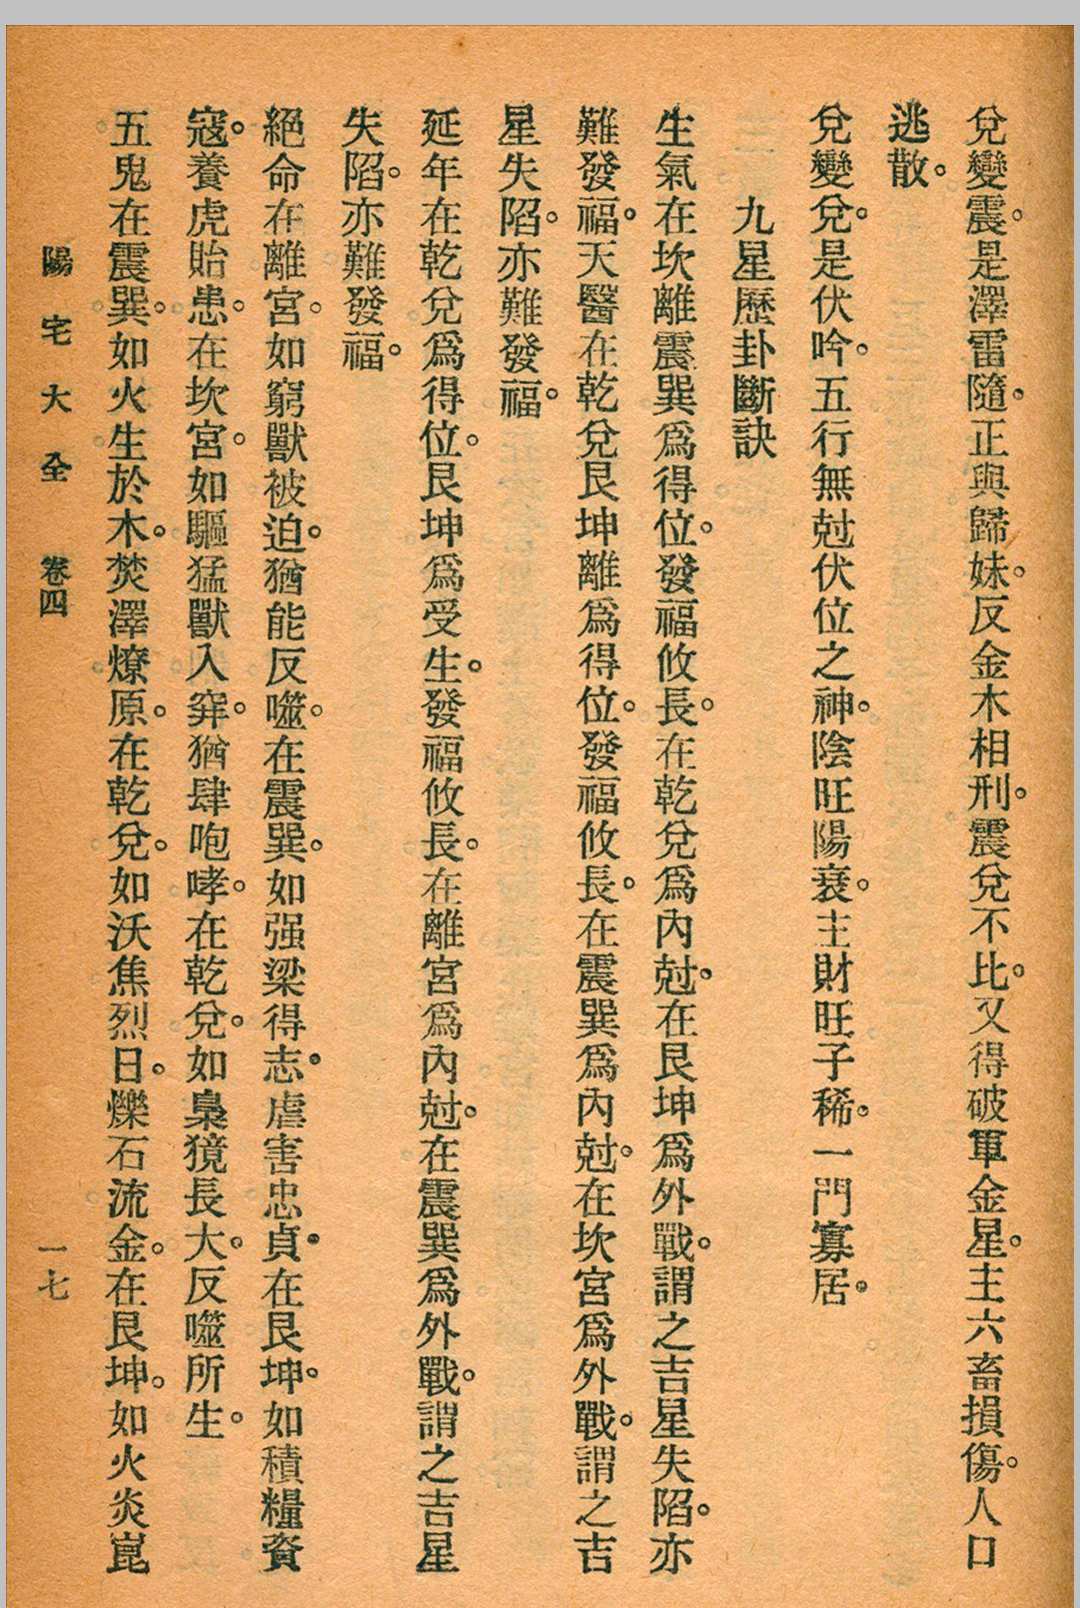 兌變震。是澤雷隨。正與歸妹。反金木相刑。震兌不比。又得破軍金星。主六畜損傷。人口
逃散。
兌變兌。是伏吟。五行無尅伏位之神。陰旺陽衰。主財旺子稀。一門寡居。
三　九星歷卦斷訣
生氣在坎離震巽爲得位。發福攸長。在乾兌爲內尅。在艮坤爲外戰。謂之吉星失陷。亦
難發福。天醫在乾兌艮坤離爲得位。發福攸長。在震巽爲內尅。在坎宮爲外戰。謂之吉
星失陷。亦難發福。
延年在乾兌爲得位。艮坤爲受生。發福攸長。在離宮爲內尅。在震巽爲外戰。謂之吉星
失陷。亦難發福。
絕命在離宮。如窮獸被迫。猶能反噬。在震巽。如强梁得志。虐害忠貞。在艮坤。如積糧資
寇。養虎貽患。在坎宮。如驅猛獸入穽。猶肆咆哮。在乾兌。如梟獍長大。反噬所生。
五鬼在震巽。如火生於木。焚澤燎原。在乾兌。如沃焦烈日。爍石流金。在艮坤。如火炎崑
陽宅大全　卷四
一七